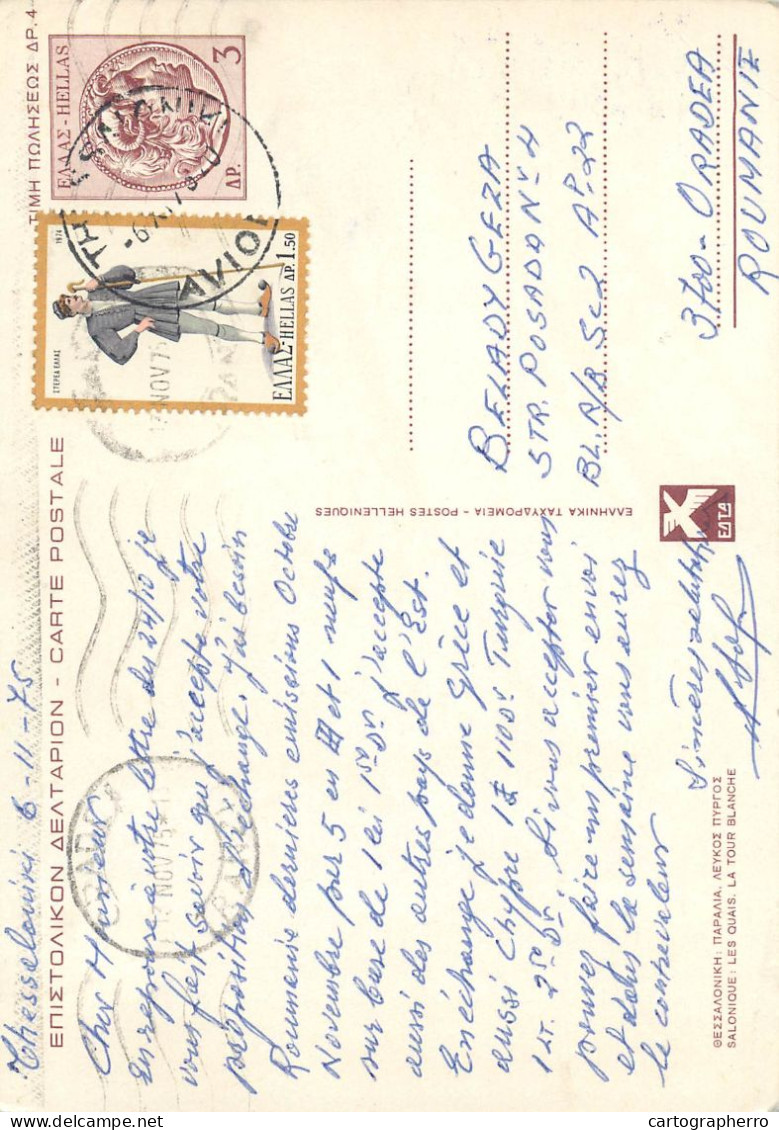 ΕΠΙΣΤΟΛΙΚΟΝ ΔΕΛΤΑΡΙΟΝ - CARTE POSTALE
ΤΙΜΗ ΠΩΛΗΣΕΩΣ ΔΡ. 4
ΕΛΛΑΣ-HELLAS
ΔΡ. 3
AVION
1974
ΣΤΕΡΕΑ ΕΛΛΑΣ
ΕΛΛΑΣ-HELLAS ΔΡ.1.50
NOV 75
ORADEA
NOV 75
Thessaloniki 6-11-75
Cher Monsieur
En reponse à votre lettre du 24/10 je
vous fait savoir que j'accepte votre
proposition d'echange. J'ai besoin
Roumanie dernières emissions Octobre
Novembre pour 5 en et 1 neufs
sur base de 1 lei 150 Dr J'accepte
aussi des autres pays de l'Est.
En échange je donne Grèce et
aussi Chypre 1£ 110 Dr Turquie
1 LT. 2.50 Dr. Si vous accepter vous
pouvez faire un premier envoi
et dans la semaine vous aurez
le contrevaleur
Sinceres salutations
ΕΛΛΗΝΙΚΑ ΤΑΧΥΔΡΟΜΕΙΑ - POSTES HELLENIQUES
BELADY GEZA
STR. POSADA Nº 4
BL.R/B Sc2 AP.22
3700-ORADEA
ROUMANIE
ΕΛΤΑ
ΘΕΣΣΑΛΟΝΙΚΗ: ΠΑΡΑΛΙΑ, ΛΕΥΚΟΣ ΠΥΡΓΟΣ
SALONIQUE: LES QUAIS, LA TOUR BLANCHE
cartographerro